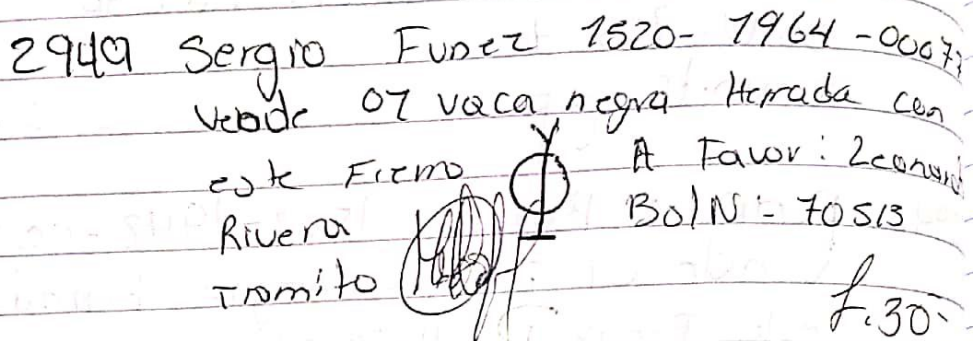 2949 Sergio Funez 1520-1964-00077
Vende 01 vaca negra Herrada con
este Fierro A Favor: Leonard
Rivera Bo/N-70513
Tramito L.30